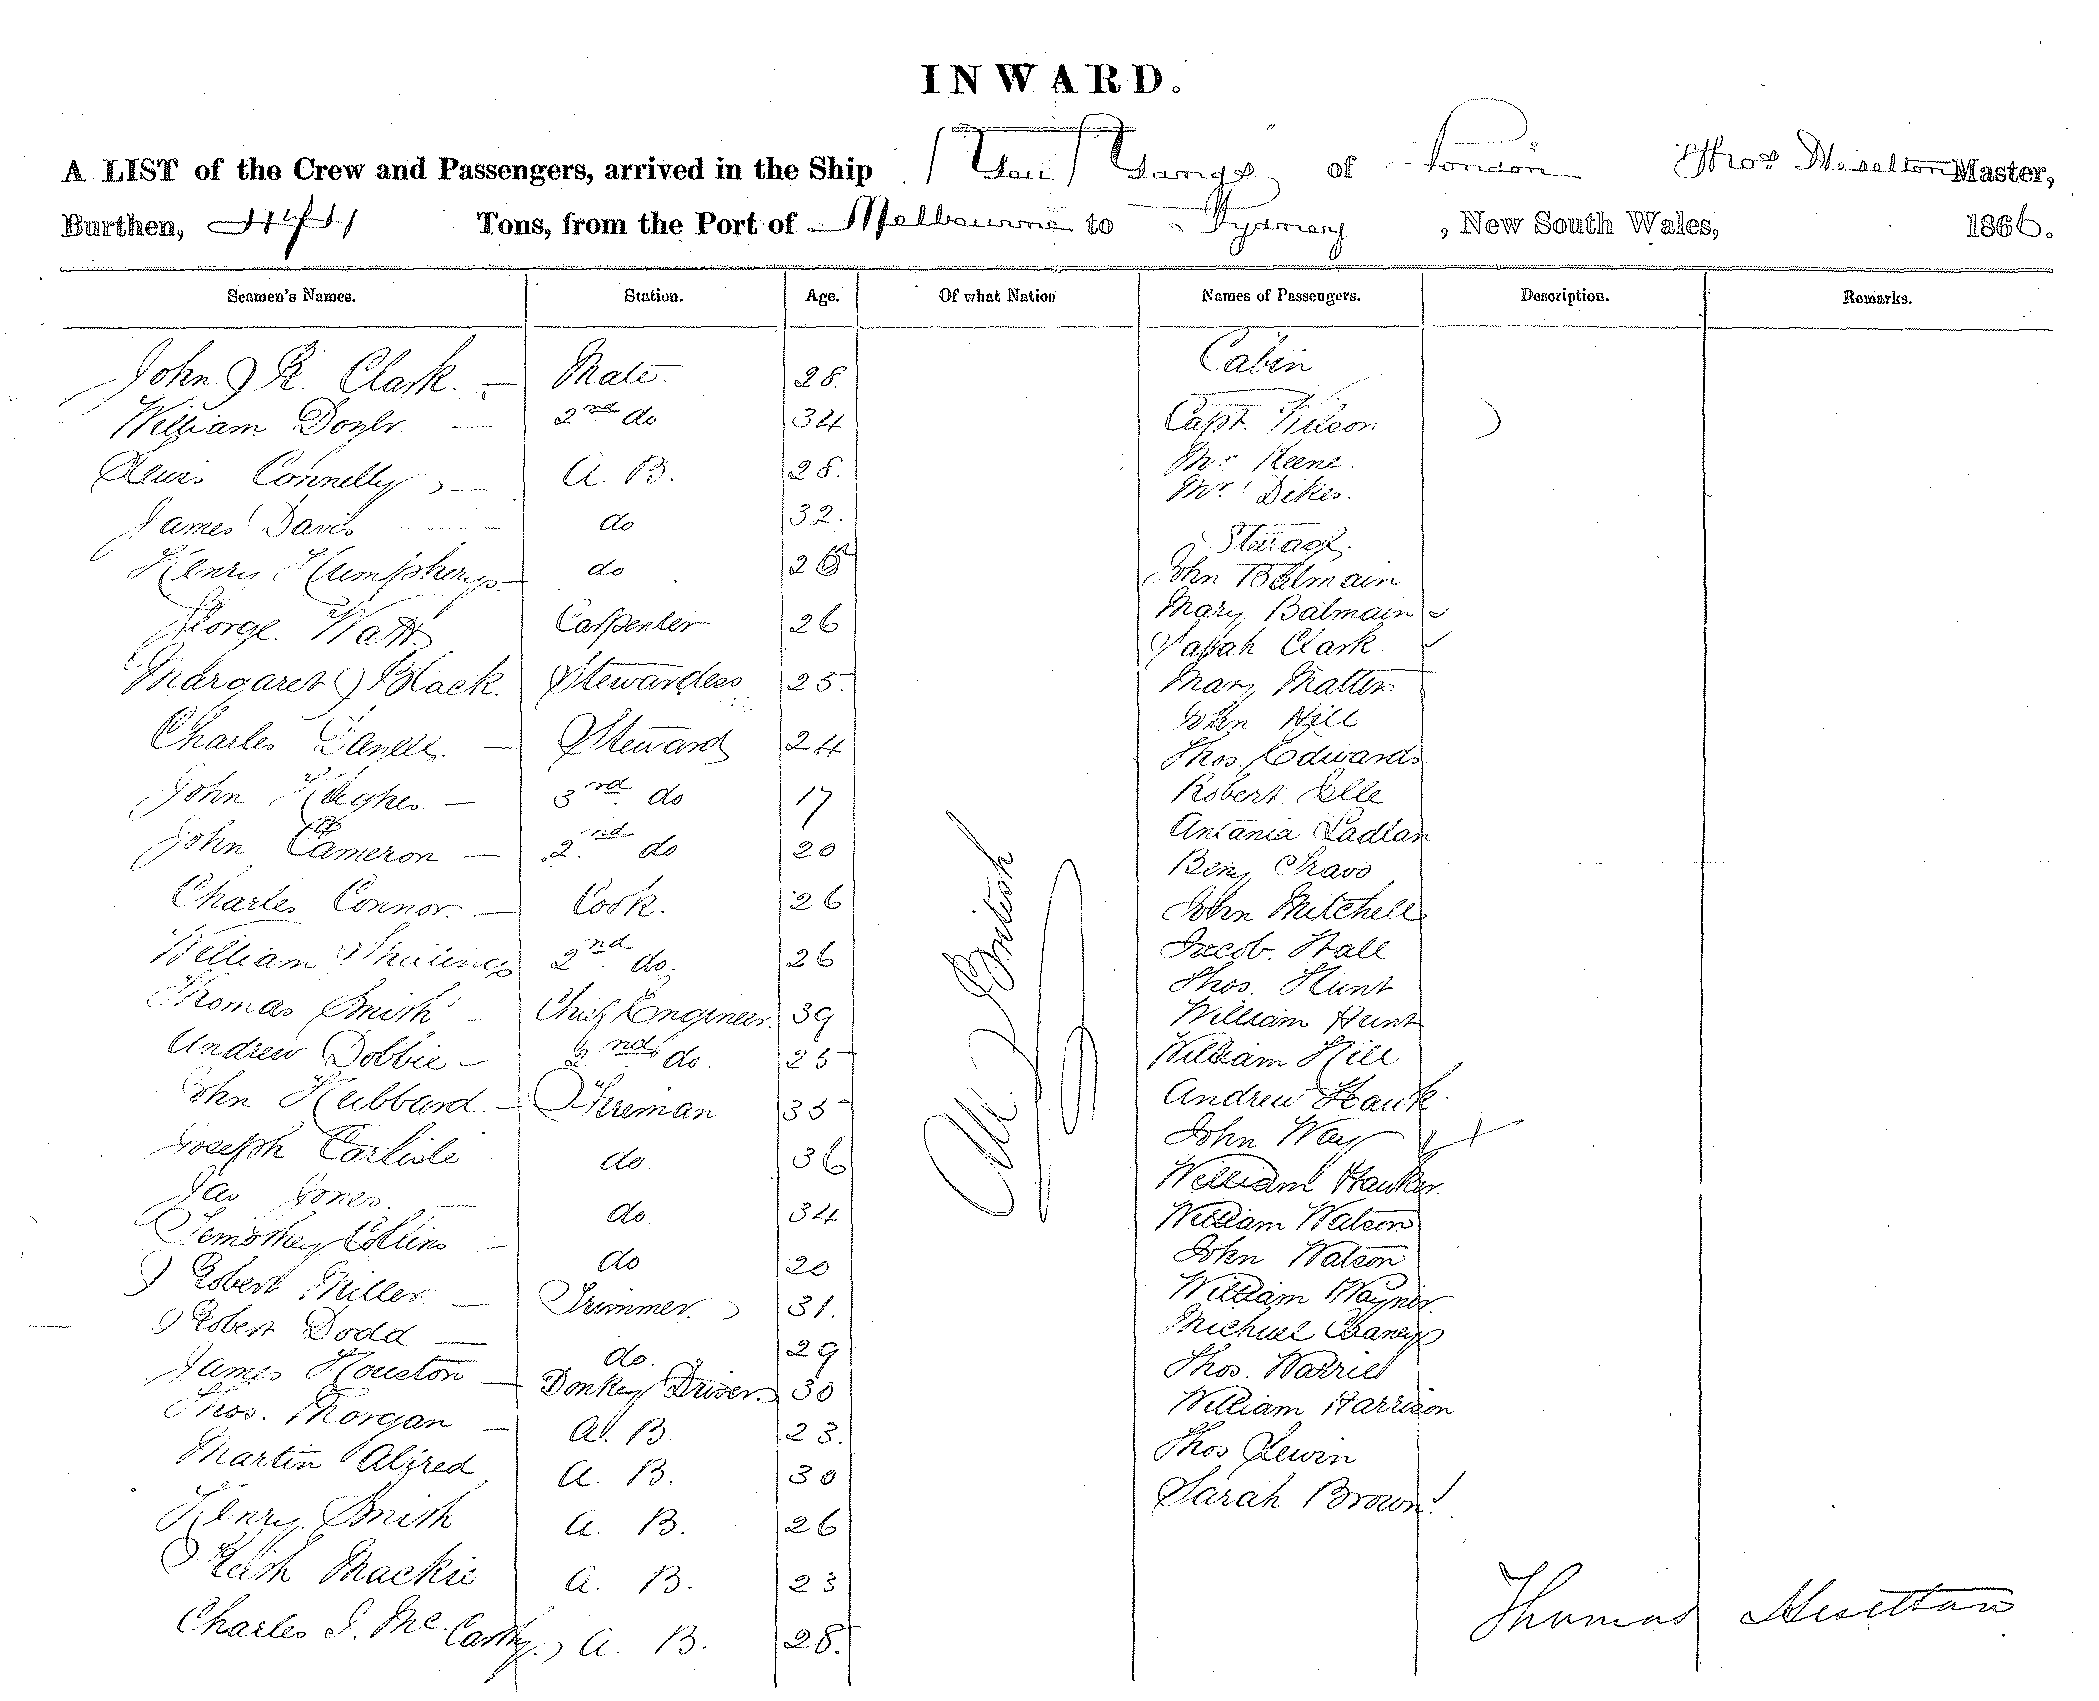 INWARD.
A LIST of the Crew and Passengers, arrived in the Ship You Yangs of London Thos Master,
Burthen, Tons, from the Port of Melbourne to Sydney, New South Wales, 1866.
Seamen's Names. Station. Age. Of what Nation Names of Passengers. Description. Remarks.
Cabin
John R. Clark. Mate 28.
William Doyle 2nd do 34 Capt.
Lewis Connelly A. B. 28. Mr Keene.
Mr Dikes.
James Davis do 32.
Steerage
Henry Humpherys do John Balmain
Mary Balmain
George Watt Carpenter 26
Sarah Clark
Margaret Black. Stewardess 25. Mary
John Hill
Charles Steward 24 Thos. Edwards
John Hughes 3rd do 17 Robert Elle
John Cameron 2nd do 20
Benj
Charles Connor. Cook. 26 John Mitchell
William 2nd do. 26 Jacob Hall
Thos. Hunt
Thomas Smith Chief Engineer. 39 William Hunt
Andrew Dobbie 2nd do. 25 William Hill
John Hubbard Fireman 35 Andrew Hauk
John Way
Joseph Carlisle do 36
William Hauker.
Jas Jones do 34 William Watson
Timothey Collins do 20 John Watson
Robert Miller Trimmer. 31. William
Robert Dodd do. 29 Michael
James Houston Donkey Driver. 30 Thos.
Thos. Morgan A. B. 23. William Harrison
Martin Alfred A. B. 30 Thos Lewin
Sarah Brown
Henry Smith A. B. 26
Keith Mackie A. B. 23
Charles McCarthy. A. B. 28.
All British
Thomas